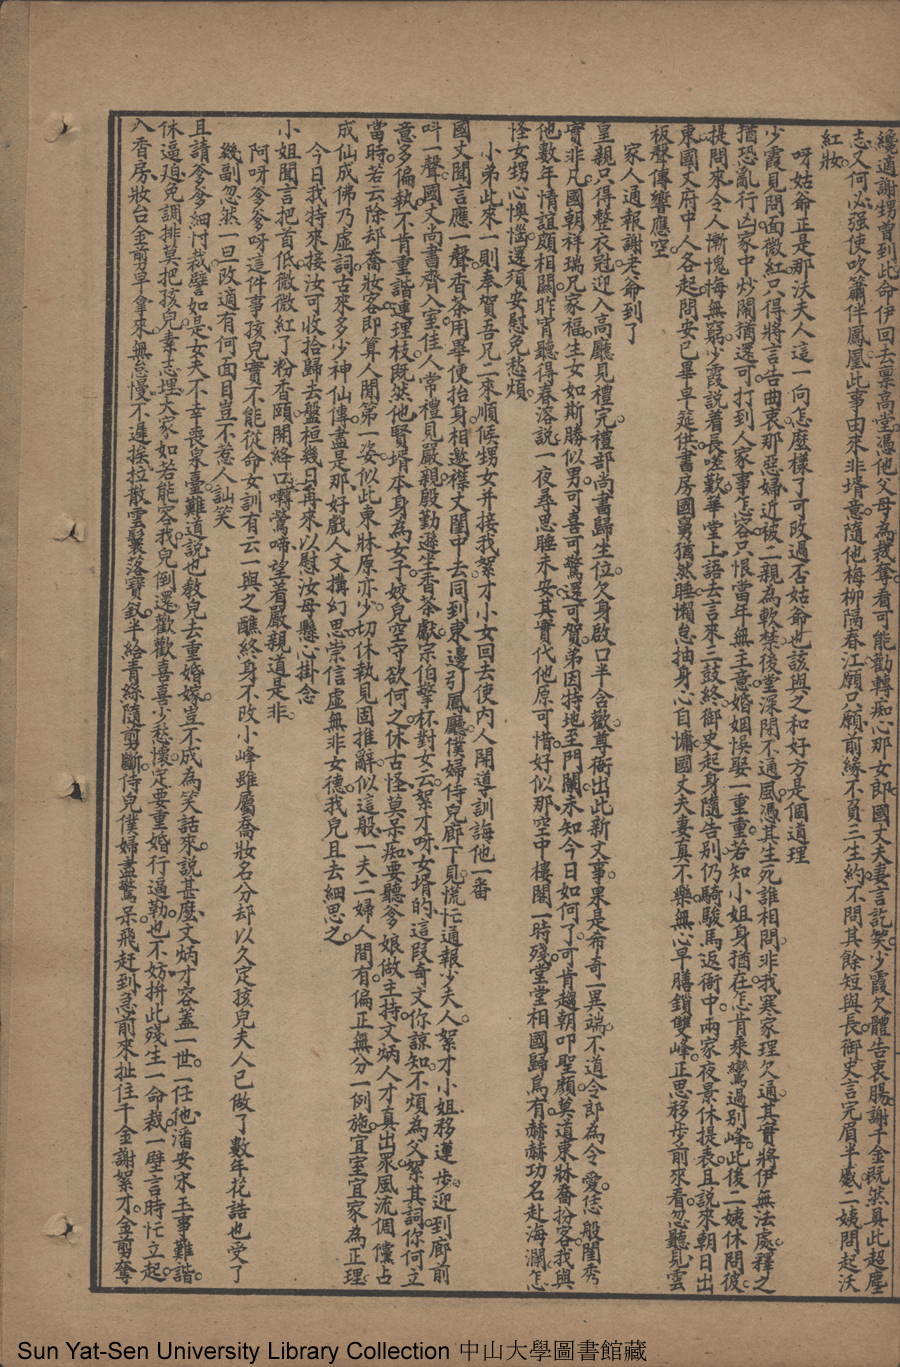 纔適謝甥曾到此。命伊回去禀高堂。憑他父母為裁奪。看可能勸轉痴心那女郎。國丈夫妻言訖笑。少霞欠體告衷腸。謝千金既然具此超塵
志。又何必強使吹簫伴鳳凰。此事由來非壻意。隨他梅柳隔春江。願只願前緣不負三生約。不問其餘短與長。御史言完眉半蹙。二姨問起沃
紅妝。
呀姑爺正是那沃夫人這一向怎麽樣了可改過否姑爺也該與之和好方是個道理
少霞見問面微紅。只得將言告曲衷。那惡婦近被二親為軟禁。後堂深閉不通風。憑其生死誰相問。非我寒家理欠通。其實將伊無法處。釋之
猶恐亂行凶。家中炒鬧猶還可。打到人家事怎容。只恨當年無主意。婚姻悞娶一重重。若知小姐身猶在。怎肯乘鸞過别峰。此後二姨休問彼。
提問來令人慚愧悔無窮。少霞説着長嗟歎。華堂上語去言來二鼓終。御史起身隨告别。仍騎駿馬返衙中。兩家夜景休提表。且説來朝日出
東。國丈府中人各起。問安已畢早筵供。書房國舅猶然睡。懶怠抽身心自慵。國丈夫妻真不樂。無心早膳鎖雙峰。正思移步前來看。忽聽見雲
板聲傳響應空。
家人通報謝老爺到了
皇親只得整衣冠。迎入高廳見禮完。禮部尚書歸坐位。欠身啟口半含歡。尊衙出此新文事。果是希奇一異端。不道令郎為令愛。恁般閨秀
實非凡。國朝祥瑞兄家福。生女如斯勝似男。可喜可驚還可賀。弟因特地至門闌。未知今日如何了。可肯趨朝叩聖顔。莫道東牀喬扮客。我與
他數年情誼頗相關。昨宵聽得春溶説。一夜尋思睡未安。其實代他原可惜。好似那空中樓閣一時殘。堂堂相國歸烏有。赫赫功名赴海瀾。怎
怪女甥心懊惱。還須安慰免愁煩。
小弟此來一則奉賀吾兄二來順候甥女并接我絮才小女回去使內人開導訓誨他一番
國丈聞言應一聲。香茶用畢便抬身。相邀襟丈閨中去。同到東邊引鳳廳。僕婦侍兒廊下見。慌忙通報少夫人。絮才小姐移蓮步。迎到廊前
呌一聲。國丈尚書齊入室。佳人常禮見嚴親。殷勤遜坐香茶獻。宗伯擎杯對女云。絮才呀女壻的這段奇文你諒知。不煩為父絮其詞。你何立
意多偏執。不肯重諧連理枝。既然他賢壻本身為女子。姣兒空守欲何之。休古怪。莫呆痴。要聽爹娘做主持。文炳人才真出眾。風流倜儻占
當時。若云除却喬妝客。即算人間第一姿。似此東牀原亦少。切休執見固推辭。似這般一夫二婦人間有。偏正無分一例施。宜室宜家為正理。
成仙成佛乃虛詞。古來多少神仙傳。盡是那好戲人文搆幻思。崇信虛無非女德。我兒且去細思之。
今日我特來接汝可收拾歸去盤桓幾日再來以慰汝母懸心掛念
小姐聞言把首低。微微紅了粉香頤。開絳口。囀鶯啼。望着嚴親道是非。
阿呀爹爹呀這件事孩兒實不能從命女訓有云一與之醮終身不改小峰雖屬喬妝名分却以久定孩兒夫人已做了數年花誥也受了
幾副忽然一旦改適有何面目豈不惹人訕笑
且請爹爹細忖裁。譬如是女夫不幸喪泉臺。難道説也教兒去重婚嫁。豈不成為笑話來。説甚麽文炳才容蓋一世。一任他潘安宋玉事難諧。
休逼迫。免調排。莫把孩兒素志埋。大家如若能容我。兒倒還歡歡喜喜少愁懷。定要重婚行逼勒。也不妨拚此殘生一命裁。一壁言時忙立起。
入香房妝台金剪早拿來。無怠慢。不遲挨。拉散雲鬟落寶釵。半綹青絲隨剪斷。侍兒僕婦盡驚呆。飛赶到。急前來。扯住千金謝絮才。金剪奪
Sun Yat-Sen University Library Collection 中山大學圖書館藏